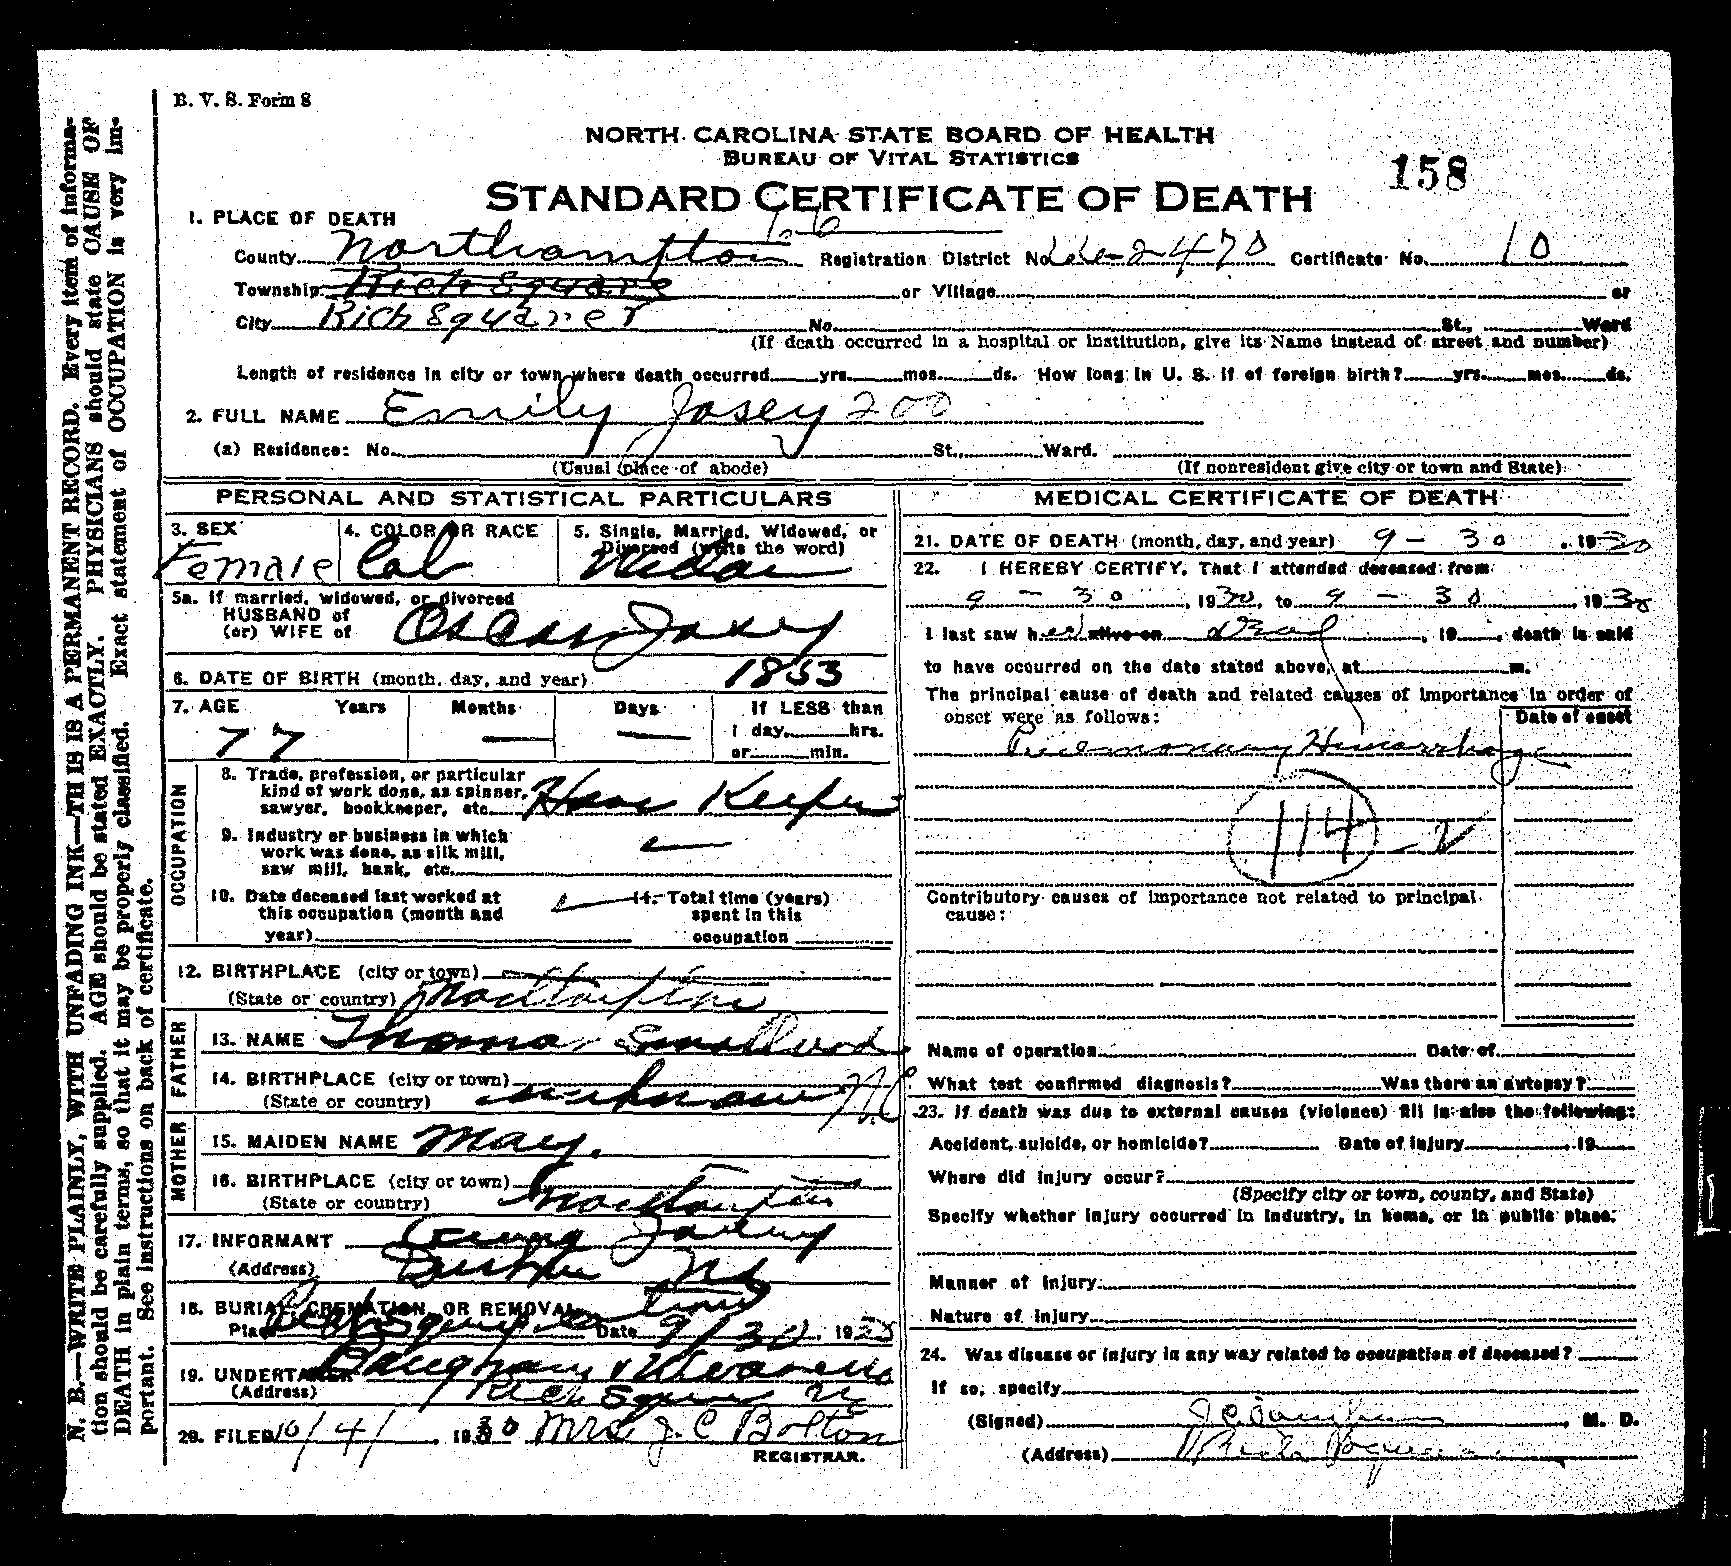 B. V. S. Form 8
NORTH CAROLINA STATE BOARD OF HEALTH
BUREAU OF VITAL STATISTICS
158
STANDARD CERTIFICATE OF DEATH
1. PLACE OF DEATH
66
County Northampton Registration District No. 66-2470 Certificate No. 10
Township Rich Square or Village or
City Rich Square No. St., Ward
(If death occurred in a hospital or institution, give its Name instead of street and number)
Length of residence in city or town where death occurred yrs. mos. ds. How long in U. S. if of foreign birth? yrs. mos. ds.
2. FULL NAME Emily Josey 200
(a) Residence: No. St., Ward.
(Usual place of abode) (If nonresident give city or town and State)
PERSONAL AND STATISTICAL PARTICULARS
3. SEX 4. COLOR OR RACE 5. Single, Married, Widowed, or
Divorced (write the word)
Female Col
5a. If married, widowed, or divorced
HUSBAND of
(or) WIFE of Oscar Josey
6. DATE OF BIRTH (month, day, and year) 1853
7. AGE Years Months Days If LESS than
77 — — 1 day, hrs.
or min.
OCCUPATION
8. Trade, profession, or particular
kind of work done, as spinner,
sawyer, bookkeeper, etc. House Keeper
9. Industry or business in which
work was done, as silk mill,
saw mill, bank, etc.
10. Date deceased last worked at 11. Total time (years)
this occupation (month and spent in this
year) occupation
12. BIRTHPLACE (city or town)
(State or country) Northampton
FATHER
13. NAME Thomas Smallwood
14. BIRTHPLACE (city or town)
(State or country) unknown N.C
MOTHER
15. MAIDEN NAME Mary.
16. BIRTHPLACE (city or town)
(State or country) Northampton
17. INFORMANT Josey
(Address) NC
18. BURIAL, CREMATION, OR REMOVAL
Place Rich Square Date 9/30, 1930
19. UNDERTAKER Baugham &
(Address) Rich Square NC
20. FILED 10/4/, 1930 Mrs J. C Bolton
REGISTRAR.
MEDICAL CERTIFICATE OF DEATH
21. DATE OF DEATH (month, day, and year) 9 - 30, 1930
22. I HEREBY CERTIFY, That I attended deceased from
9 - 30, 1930, to 9 - 30, 1930
I last saw her alive on Dead, 19, death is said
to have occurred on the date stated above, at m.
The principal cause of death and related causes of importance in order of
onset were as follows: Date of onset
114 -
Contributory causes of importance not related to principal
cause:
Name of operation Date of
What test confirmed diagnosis? Was there an autopsy?
23. If death was due to external causes (violence) fill in also the following:
Accident, suicide, or homicide? Date of injury 19
Where did injury occur?
(Specify city or town, county, and State)
Specify whether injury occurred in industry, in home, or in public place.
Manner of injury
Nature of injury
24. Was disease or injury in any way related to occupation of deceased?
If so, specify
(Signed) M. D.
(Address) Rich Square
N. B.—WRITE PLAINLY, WITH UNFADING INK—THIS IS A PERMANENT RECORD. Every item of informa-
tion should be carefully supplied. AGE should be stated EXACTLY. PHYSICIANS should state CAUSE OF
DEATH in plain terms, so that it may be properly classified. Exact statement of OCCUPATION is very im-
portant. See instructions on back of certificate.